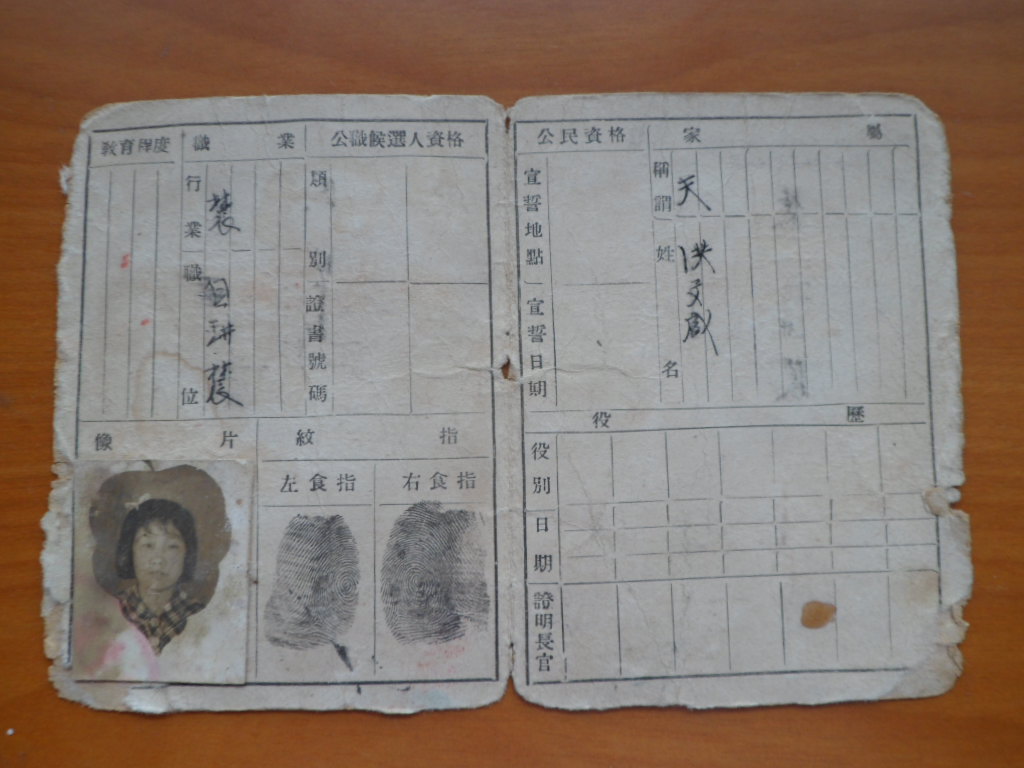 教育程度
職業
公職候選人資格
行業
農
職位
自耕農
類別
證書號碼
像片
指紋
左食指
右食指
公民資格
家屬
宣誓地點
宣誓日期
稱謂
夫
姓名
洪文成
役歷
役別
日期
證明長官